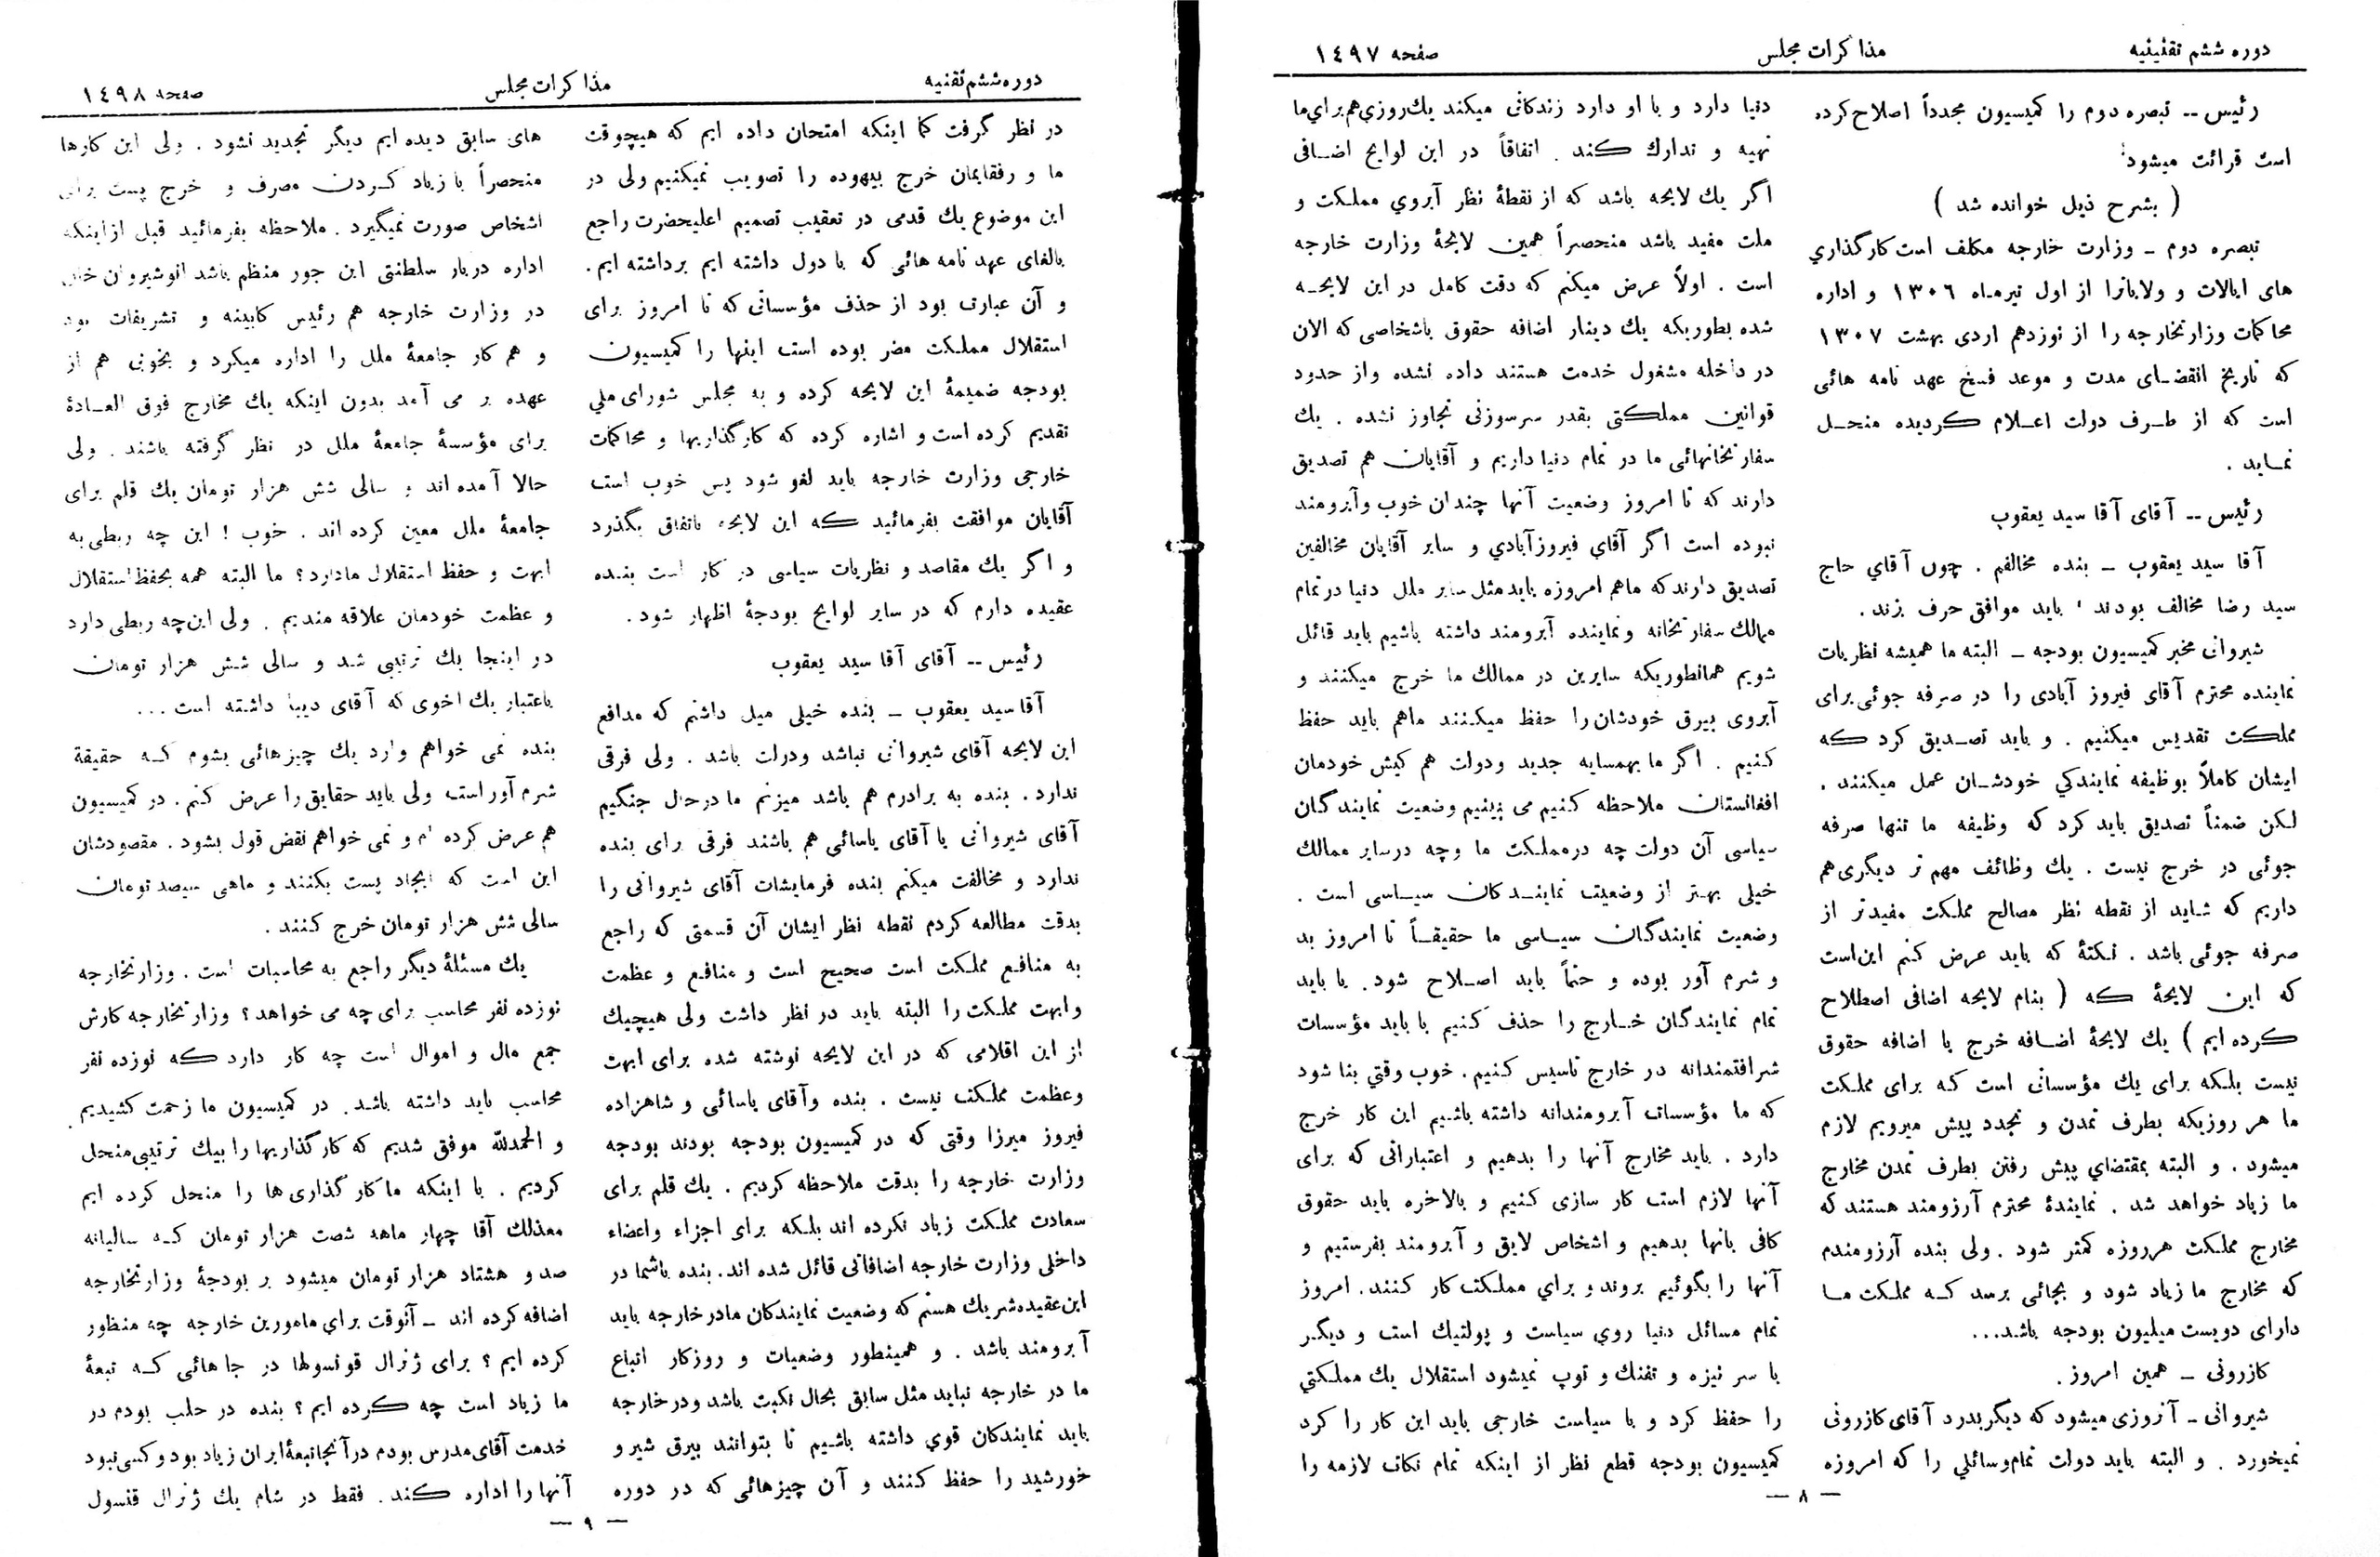 دوره ششم تقنینیه
مذاکرات مجلس
صفحه ١٤٩٧
رئیس -- تبصره دوم را کمیسیون مجدداً اصلاح کرده
است قرائت میشود:
( بشرح ذیل خوانده شد )
تبصره دوم - وزارت خارجه مکلف است کارگذاري
های ایالات و ولایاترا از اول تیرماه ١٣٠٦ و اداره
محاکمات وزارتخارجه را از نوزدهم اردی بهشت ١٣٠٧
که تاریخ انقضای مدت و موعد فسخ عهد نامه هائی
است که از طرف دولت اعلام کردیده منحل
نماید .
رئیس -- آقای آقا سید یعقوب
آقا سید یعقوب - بنده مخالفم . چون آقاي حاج
سید رضا مخالف بودند ، باید موافق حرف بزند .
شیروانی مخبر کمیسیون بودجه - البته ما همیشه نظریات
نماینده محترم آقای فیروز آبادی را در صرفه جوئی برای
مملکت تقدیس میکنیم . و باید تصدیق کرد که
ایشان کاملاً بوظیفه نمایندکي خودشان عمل میکنند .
لکن ضمناً تصدیق باید کرد که وظیفه ما تنها صرفه
جوئی در خرج نیست . یك وظائف مهم تر دیگری هم
داریم که شاید از نقطه نظر مصالح مملکت مفیدتر از
صرفه جوئی باشد . نکتهٔ که باید عرض کنم این است
که این لایحهٔ که ( بنام لایحه اضافی اصطلاح
کرده ایم ) یك لایحهٔ اضافه خرج یا اضافه حقوق
نیست بلکه برای یك مؤسساتی است که برای مملکت
ما هر روزیکه بطرف تمدن و تجدد پیش میرویم لازم
میشود . و البته بمقتضاي پیش رفتن بطرف تمدن مخارج
ما زیاد خواهد شد . نمایندهٔ محترم آرزومند هستند که
مخارج مملکت هرروزه کمتر شود . ولی بنده آرزومندم
که مخارج ما زیاد شود و بجائی برسد که مملکت ما
دارای دویست میلیون بودجه باشد...
کازرونی - همین امروز .
شیروانی - آنروزی میشود که دیگر بدرد آقای کازرونی
نمیخورد . و البته باید دولت تمام وسائلي را که امروزه
دنیا دارد و با او دارد زندکانی میکند یك روزي هم برای ما
تهیه و تدارك کند . اتفاقاً در این لوایح اضافی
اگر یك لایحه باشد که از نقطهٔ نظر آبروي مملکت و
ملت مفید باشد منحصراً همین لایحهٔ وزارت خارجه
است . اولاً عرض میکنم که دقت کامل در این لایحه
شده بطوریکه یك دینار اضافه حقوق باشخاصی که الان
در داخله مشغول خدمت هستند داده نشده واز حدود
قوانین مملکتی بقدر سرسوزنی تجاوز نشده . یك
سفارتخانهائی ما در تمام دنیا داریم و آقایان هم تصدیق
دارند که تا امروز وضعیت آنها چندان خوب وآبرومند
نبوده است اگر آقاي فیروزآبادي و سایر آقایان مخالفین
تصدیق دارند که ماهم امروزه باید مثل سایر ملل دنیا در تمام
ممالك سفارتخانه و نماینده آبرومند داشته باشیم باید قائل
شویم همانطوریکه سایرین در ممالك ما خرج میکنند و
آبروی بیرق خودشان را حفظ میکنند ماهم باید حفظ
کنیم . اگر ما بهمسایه جدید ودولت هم کیش خودمان
افغانستان ملاحظه کنیم می بینیم وضعیت نمایندگان
سیاسی آن دولت چه درمملکت ما وچه درسایر ممالك
خیلی بهتر از وضعیت نمایندکان سیاسی است .
وضعیت نمایندگان سیاسی ما حقیقتاً تا امروز بد
و شرم آور بوده و حتماً باید اصلاح شود . یا باید
تمام نمایندگان خارج را حذف کنیم یا باید مؤسسات
شرافتمندانه در خارج تاسیس کنیم . خوب وقتي بنا شود
که ما مؤسسات آبرومندانه داشته باشیم این کار خرج
دارد . باید مخارج آنها را بدهیم و اعتباراتی که برای
آنها لازم است کار سازی کنیم و بالاخره باید حقوق
کافی بانها بدهیم و اشخاص لایق و آبرومند بفرستیم و
آنها را بگوئیم بروند و براي مملکت کار کنند . امروز
تمام مسائل دنیا روي سیاست و پولتیك است و دیگر
با سر نیزه و تفنك و توپ نمیشود استقلال یك مملکتي
را حفظ کرد و با سیاست خارجی باید این کار را کرد
کمیسیون بودجه قطع نظر از اینکه تمام نکات لازمه را
— ٨ —
دوره ششم تقنیه
مذاکرات مجلس
صفحه ١٤٩٨
در نظر گرفت کما اینکه امتحان داده ایم که هیچوقت
ما و رفقایمان خرج بیهوده را تصویب نمیکنیم ولی در
این موضوع یك قدمی در تعقیب تصمیم اعلیحضرت راجع
بالغای عهد نامه هائی که با دول داشته ایم برداشته ایم .
و آن عبارت بود از حذف مؤسساتی که تا امروز برای
استقلال مملکت مضر بوده است اینها را کمیسیون
بودجه ضمیمهٔ این لایحه کرده و به مجلس شورای ملي
تقدیم کرده است و اشاره کرده که کارگذاریها و محاکمات
خارجی وزارت خارجه باید لغو شود پس خوب است
آقایان موافقت بفرمائید که این لایحه باتفاق بگذرد
و اگر یك مقاصد و نظریات سیاسی در کار است بنده
عقیده دارم که در سایر لوایح بودجهٔ اظهار شود .
رئیس -- آقای آقا سید یعقوب
آقا سید یعقوب - بنده خیلی میل داشتم که مدافع
این لایحه آقای شیروانی نباشد ودولت باشد . ولی فرقی
ندارد . بنده به برادرم هم باشد میزنم ما درحال جنگیم
آقای شیروانی یا آقای یاسائی هم باشند فرقی برای بنده
ندارد و مخالفت میکنم بنده فرمایشات آقای شیروانی را
بدقت مطالعه کردم نقطه نظر ایشان آن قسمتی که راجع
به منافع مملکت است صحیح است و منافع و عظمت
وابهت مملکت را البته باید در نظر داشت ولی هیچیك
از این اقلامی که در این لایحه نوشته شده برای ابهت
وعظمت مملکت نیست . بنده وآقای یاسائی و شاهزاده
فیروز میرزا وقتی که در کمیسیون بودجه بودند بودجه
وزارت خارجه را بدقت ملاحظه کردیم . یك قلم برای
سعادت مملکت زیاد نکرده اند بلکه برای اجزاء واعضاء
داخلی وزارت خارجه اضافاتی قائل شده اند . بنده باشما در
این عقیده شریك هستم که وضعیت نمایندکان مادر خارجه باید
آبرومند باشد . و همینطور وضعیات و روزکار اتباع
ما در خارجه نباید مثل سابق بحال نکبت باشد ودر خارجه
باید نمایندکان قوي داشته باشیم تا بتوانند بیرق شیر و
خورشید را حفظ کنند و آن چیزهائی که در دوره
های سابق دیده ایم دیگر تجدید نشود . ولی این کارها
منحصراً با زیاد کردن مصرف و خرج پست برای
اشخاص صورت نمیگیرد . ملاحظه بفرمائید قبل ازاینکه
اداره دربار سلطنتی این جور منظم باشد انوشیروان خان
در وزارت خارجه هم رئیس کابینه و تشریفات بود
و هم کار جامعهٔ ملل را اداره میکرد و بخوبی هم از
عهده بر می آمد بدون اینکه یك مخارج فوق العادهٔ
برای مؤسسهٔ جامعهٔ ملل در نظر گرفته باشند . ولی
حالا آمده اند و سالی شش هزار تومان یك قلم برای
جامعهٔ ملل معین کرده اند . خوب ! این چه ربطی به
ابهت و حفظ استقلال مادارد؟ ما البته همه بحفظ استقلال
و عظمت خودمان علاقه مندیم . ولی این چه ربطی دارد
در اینجا یك ترتیبی شد و سالی شش هزار تومان
باعتبار یك اخوی که آقای دیبا داشته است ...
بنده نمی خواهم وارد یك چیزهائی بشوم که حقیقة
شرم آور است ولی باید حقایق را عرض کنم . در کمیسیون
هم عرض کرده ام و نمی خواهم نقض قول بشود . مقصودشان
این است که ایجاد پست بکنند و ماهی سیصد تومان
سالی شش هزار تومان خرج کنند .
یك مسئلهٔ دیگر راجع به محاسبات است . وزارتخارجه
نوزده نفر محاسب برای چه می خواهد؟ وزارتخارجه کارش
جمع مال و اموال است چه کار دارد که نوزده نفر
محاسب باید داشته باشد . در کمیسیون ما زحمت کشیدیم
و الحمدلله موفق شدیم که کارگذاریها را بیك ترتیبی منحل
کردیم . با اینکه ما کارگذاری ها را منحل کرده ایم
معذلك آقا چهار ماهه شصت هزار تومان که سالیانه
صد و هشتاد هزار تومان میشود بر بودجهٔ وزارتخارجه
اضافه کرده اند - آنوقت براي مامورین خارجه چه منظور
کرده ایم ؟ برای ژنرال قونسولها در جا هائی که تبعهٔ
ما زیاد است چه کرده ایم ؟ بنده در حلب بودم در
خدمت آقای مدرس بودم در آنجا تبعهٔ ایران زیاد بود و کسی نبود
آنها را اداره کند . فقط در شام یك ژنرال قنسول
— ٩ —